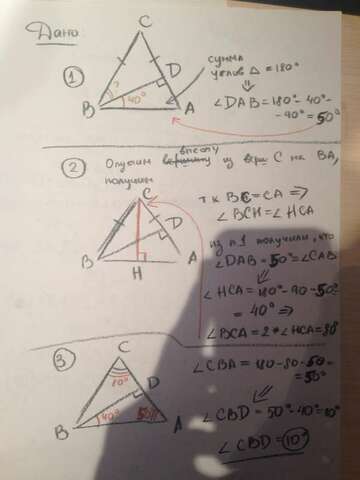 Дано:
1
C
D
B
A
?
40°
сумма
углов △ = 180°
⇓
∠DAB = 180° - 40° -
- 40° = 50°
2
Опустим высоту из верш C на BA,
получим
C
D
B
H
A
т.к BC = CA ⇒
∠BCH = ∠HCA
из п 1 получили, что
∠DAB = 50° = ∠CAB
⇓
∠HCA = 180° - 90 - 50°
= 40° ⇒
∠BCA = 2 * ∠HCA = 80
3
C
80°
D
40°
50°
B
A
∠CBA = 180 - 80 - 50 =
= 50°
⇓
∠CBD = 50° - 40° = 10°
∠CBD = 10°